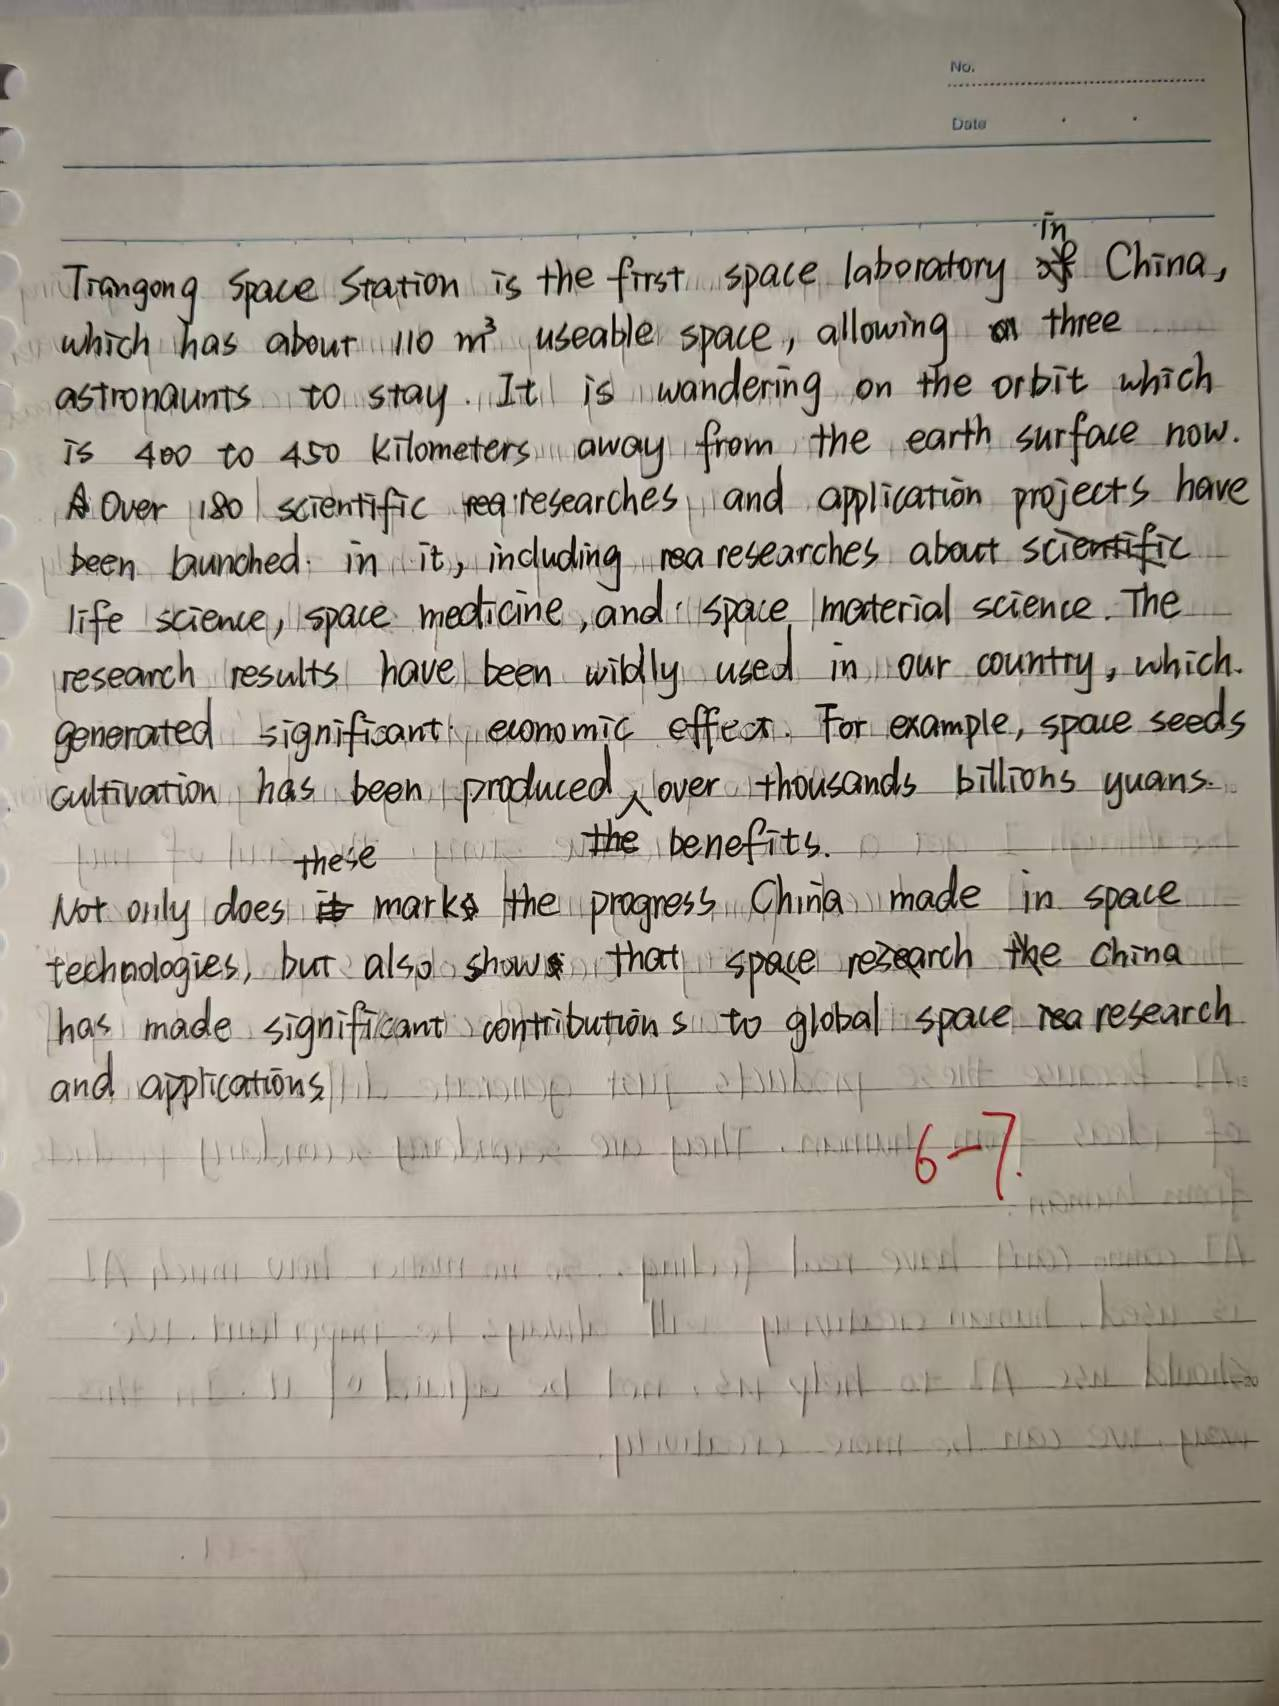 No.
Date
Triangong Space Station is the first space laboratory in China,
which has about 110 m³ useable space, allowing three
astronaunts to stay. It is wandering on the orbit which
is 400 to 450 kilometers away from the earth surface now.
Over 180 scientific researches and application projects have
been launched in it, including researches about
life science, space medicine, and space material science. The
research results have been wildly used in our country, which
generated significant economic effect. For example, space seeds
cultivation has been produced over thousands billions yuans.
benefits.
these
Not only does mark the progress China made in space
technologies, but also show that China
has made significant contributions to global space research
and applications.
6-7.